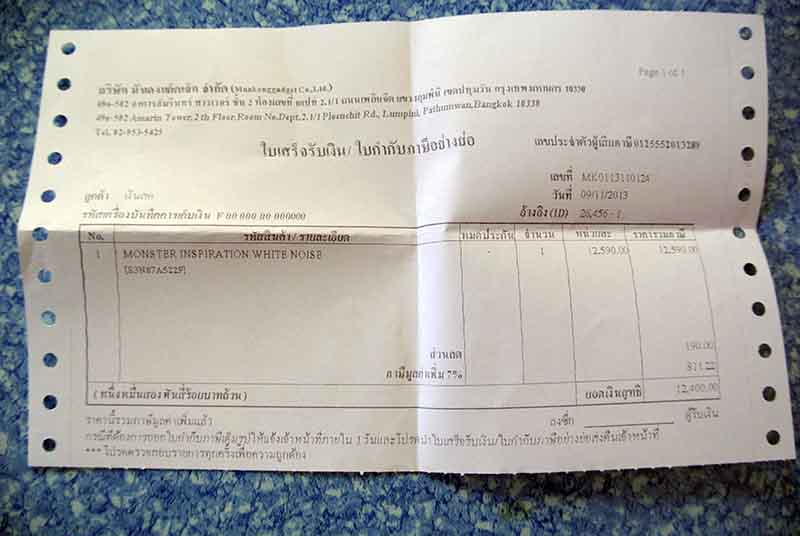 Page 1 of 1
บริษัท มั่นคงแก็ดเจ็ต จำกัด (Munkonggadget Co.,Ltd.)
496-502 อาคารอัมรินทร์ ทาวเวอร์ ชั้น 2 ห้องเลขที่ ดีปท 2.1/1 ถนนเพลินจิต แขวงลุมพินี เขตปทุมวัน กรุงเทพมหานคร 10330
496-502 Amarin Tower, 2th Floor, Room No.Dept.2.1/1 Ploenchit Rd., Lumpini, Pathumwan, Bangkok 10330
Tel. 02-953-5425
ใบเสร็จรับเงิน/ ใบกำกับภาษีอย่างย่อ
เลขประจำตัวผู้เสียภาษี 0125552013289
เลขที่ MK0113110124
ลูกค้า เงินสด
วันที่ 09/11/2013
รหัสเครื่องบันทึกการเก็บเงิน F 00 000 00 000000
อ้างอิง (ID) 26,456 - 1
No. รหัสสินค้า / รายละเอียด หมดประกัน จำนวน หน่วยละ ราคารวมภาษี
1 MONSTER INSPIRATION WHITE NOISE - 1 12,590.00 12,590.00
ส่วนลด 190.00
ภาษีมูลค่าเพิ่ม 7% 811.22
( หนึ่งหมื่นสองพันสี่ร้อยบาทถ้วน ) ยอดเงินสุทธิ 12,400.00
ราคานี้รวมภาษีมูลค่าเพิ่มแล้ว
ลงชื่อ ผู้รับเงิน
กรณีที่ต้องการออกใบกำกับภาษีเต็มรูปให้แจ้งเจ้าหน้าที่ภายใน 1 วันและโปรดนำใบเสร็จรับเงิน/ใบกำกับภาษีอย่างย่อส่งคืนเจ้าหน้าที่
*** โปรดตรวจสอบรายการทุกครั้งเพื่อความถูกต้อง